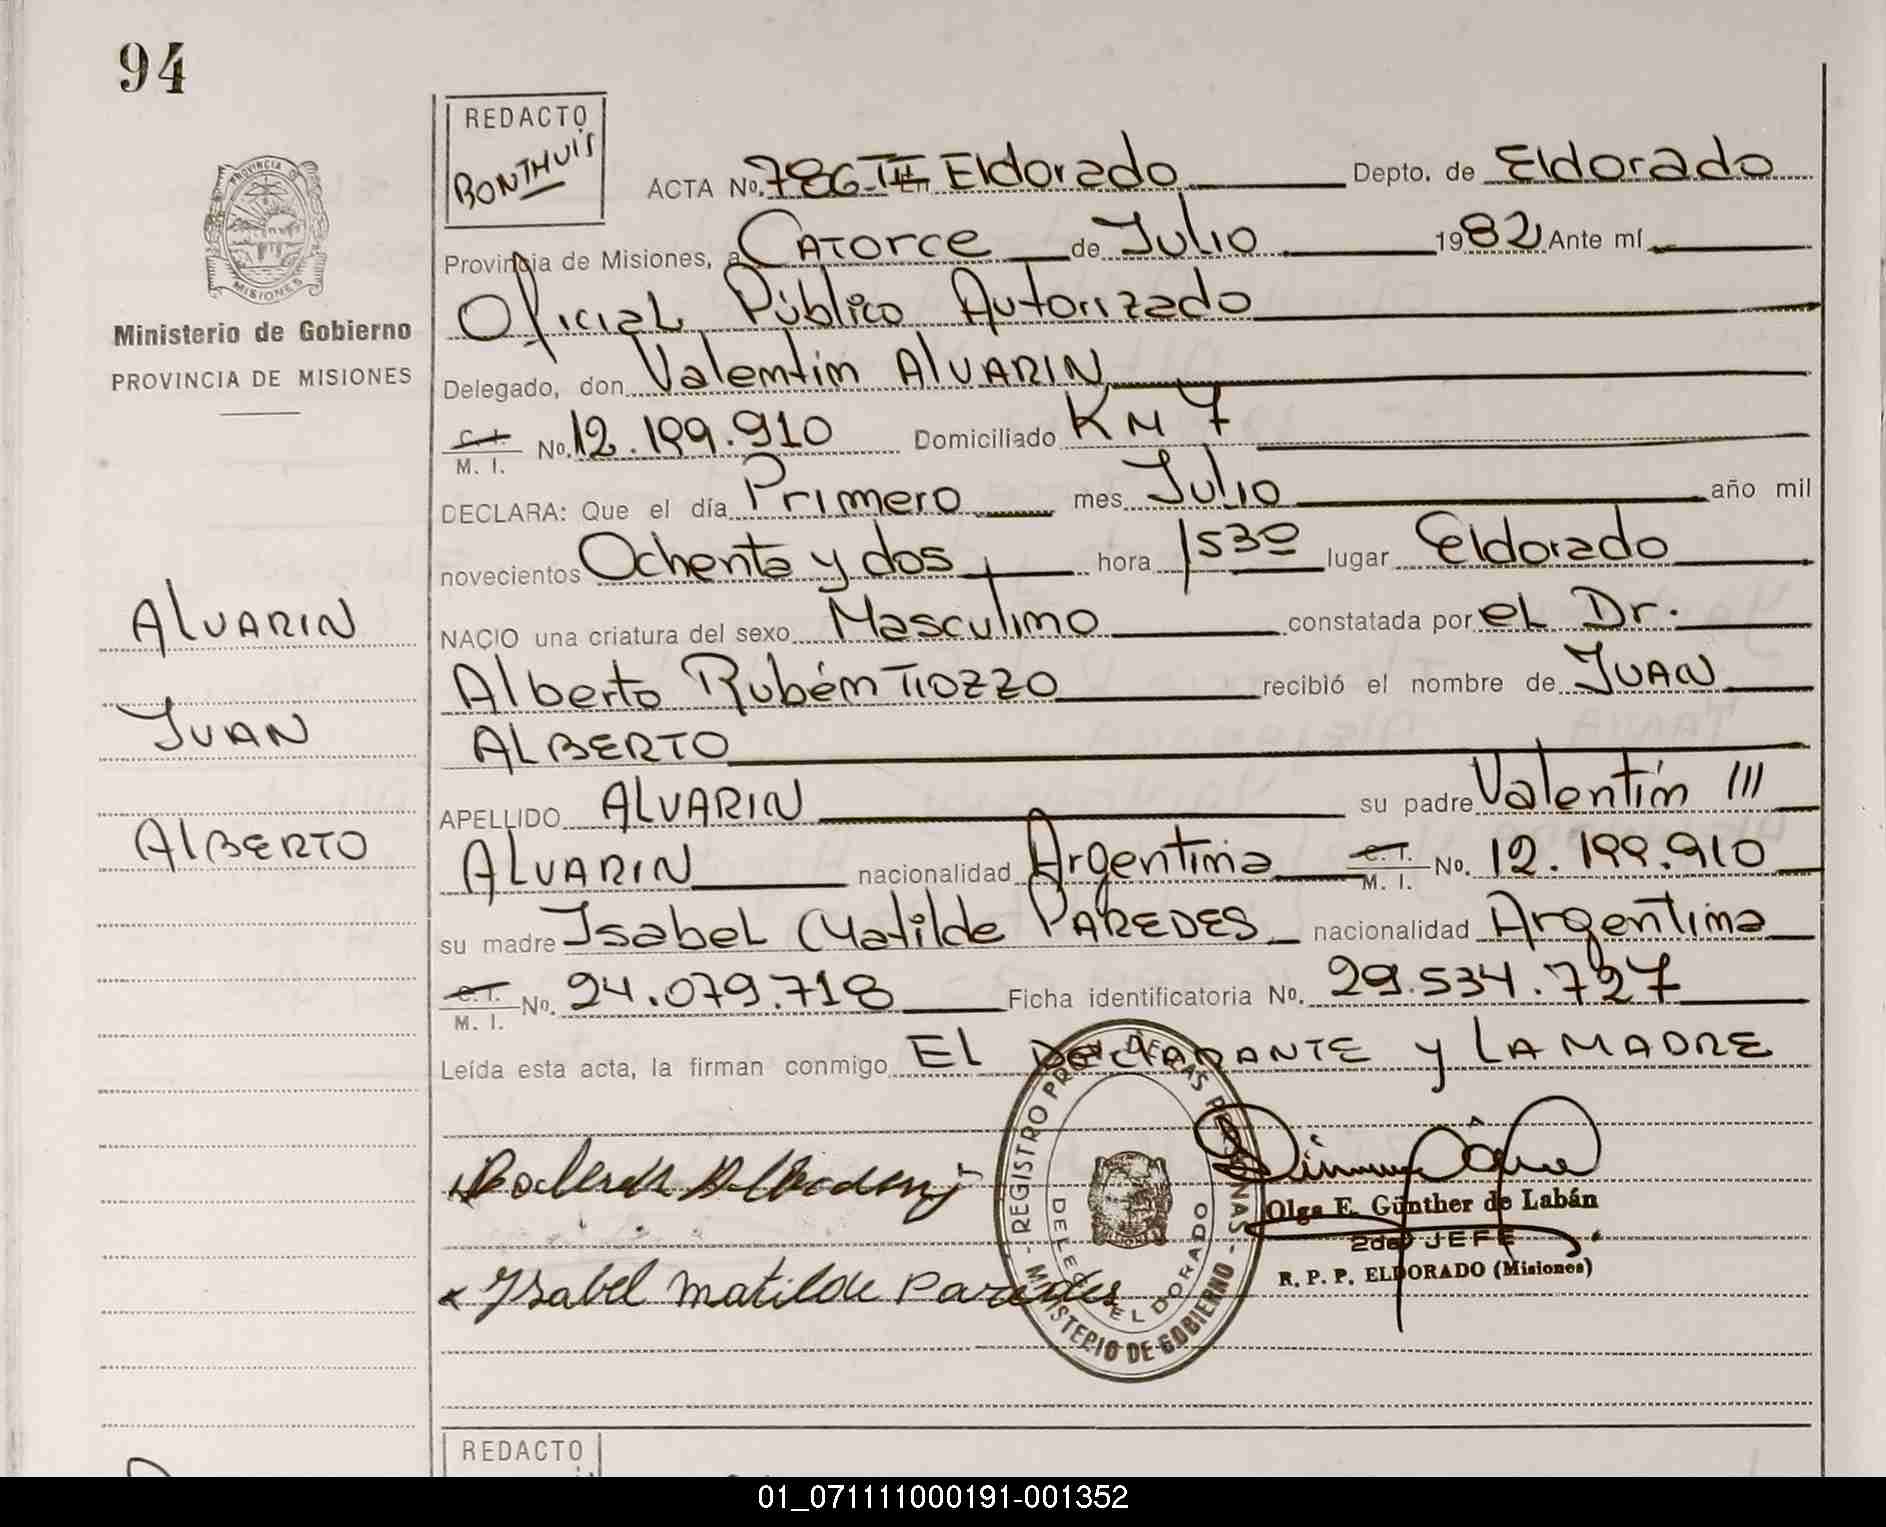 94
PROVINCIA
MISIONES
Ministerio de Gobierno
PROVINCIA DE MISIONES
REDACTO
BONTHUIS
ACTA No. 786 Eldorado Depto. de Eldorado
Provincia de Misiones, a Catorce de Julio 1982 Ante mí
Oficial Público Autorizado
Delegado, don Valentín ALVARIN
C. I. M. I. No. 12.199.910 Domiciliado KM 7
DECLARA: Que el día Primero mes Julio año mil
novecientos Ochenta y dos hora 1530 lugar Eldorado
NACIO una criatura del sexo Masculino constatada por el Dr.
Alberto Rubén Tiozzo recibió el nombre de JUAN
ALBERTO
APELLIDO ALVARIN su padre Valentín III
ALVARIN nacionalidad Argentina C. I. M. I. No. 12.199.910
su madre Isabel Matilde PAREDES nacionalidad Argentina
C. I. M. I. No. 24.079.718 Ficha identificatoria No. 29.534.727
Leída esta acta, la firman conmigo EL DECLARANTE y LA MADRE
ALVARIN
JUAN
ALBERTO
Isabel Matilde Paredes
REGISTRO PROV. DE LAS PERSONAS
MINISTERIO DE GOBIERNO
ELDORADO
Olga E. Günther de Labán
2do JEFE
R. P. P. ELDORADO (Misiones)
REDACTO
01_071111000191-001352